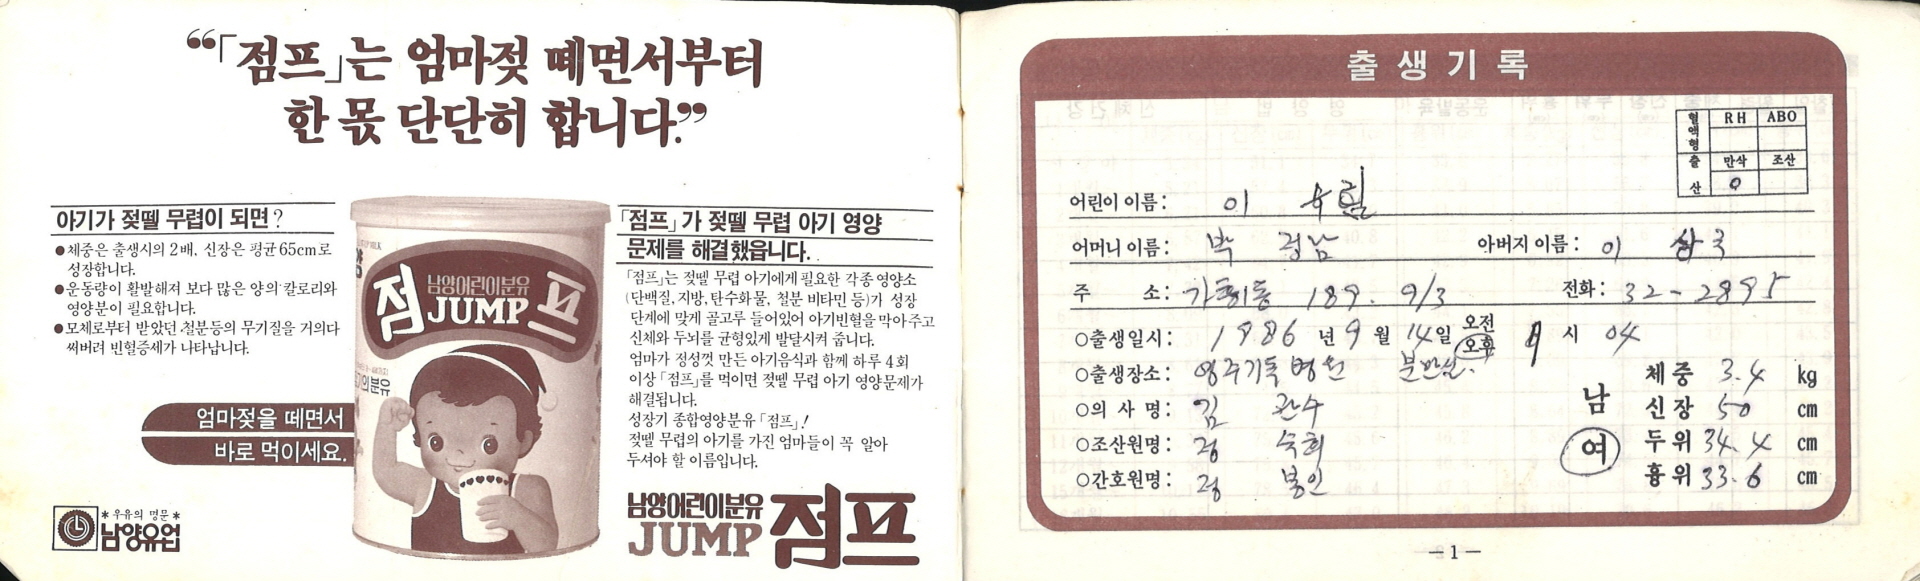 “「점프」는 엄마젖 떼면서부터
한 몫 단단히 합니다.”
아기가 젖뗄 무렵이 되면?
●체중은 출생시의 2배, 신장은 평균 65cm로
성장합니다.
●운동량이 활발해져 보다 많은 양의 칼로리와
영양분이 필요합니다.
●모체로부터 받았던 철분등의 무기질을 거의다
써버려 빈혈증세가 나타납니다.
엄마젖을 떼면서
바로 먹이세요.
*우유의 명문*
남양유업
점프
남양어린이분유
JUMP
「점프」가 젖뗄 무렵 아기 영양
문제를 해결했읍니다.
「점프」는 젖뗄 무렵 아기에게 필요한 각종 영양소
(단백질, 지방, 탄수화물, 철분 비타민 등)가 성장
단계에 맞게 골고루 들어있어 아기빈혈을 막아주고
신체와 두뇌를 균형있게 발달시켜 줍니다.
엄마가 정성껏 만든 아기음식과 함께 하루 4회
이상 「점프」를 먹이면 젖뗄 무렵 아기 영양문제가
해결됩니다.
성장기 종합영양분유 「점프」!
젖뗄 무렵의 아기를 가진 엄마들이 꼭 알아
두셔야 할 이름입니다.
남양어린이분유
JUMP 점프
출생기록
혈액형 RH ABO
출산 만삭 조산
0
어린이 이름: 이 유림
어머니 이름: 박 정남 아버지 이름: 이 상국
주 소: 가흥1동 189. 9/3 전화: 32-2895
○출생일시: 1986년 9월 14일 오전 오후 시 04
○출생장소: 영주기독병원 분만실.
○의 사 명: 김 관수
○조산원명: 정 숙희
○간호원명: 정 봉인
남
여
체중 3.4 kg
신장 50 cm
두위 34.4 cm
흉위 33.6 cm
-1-